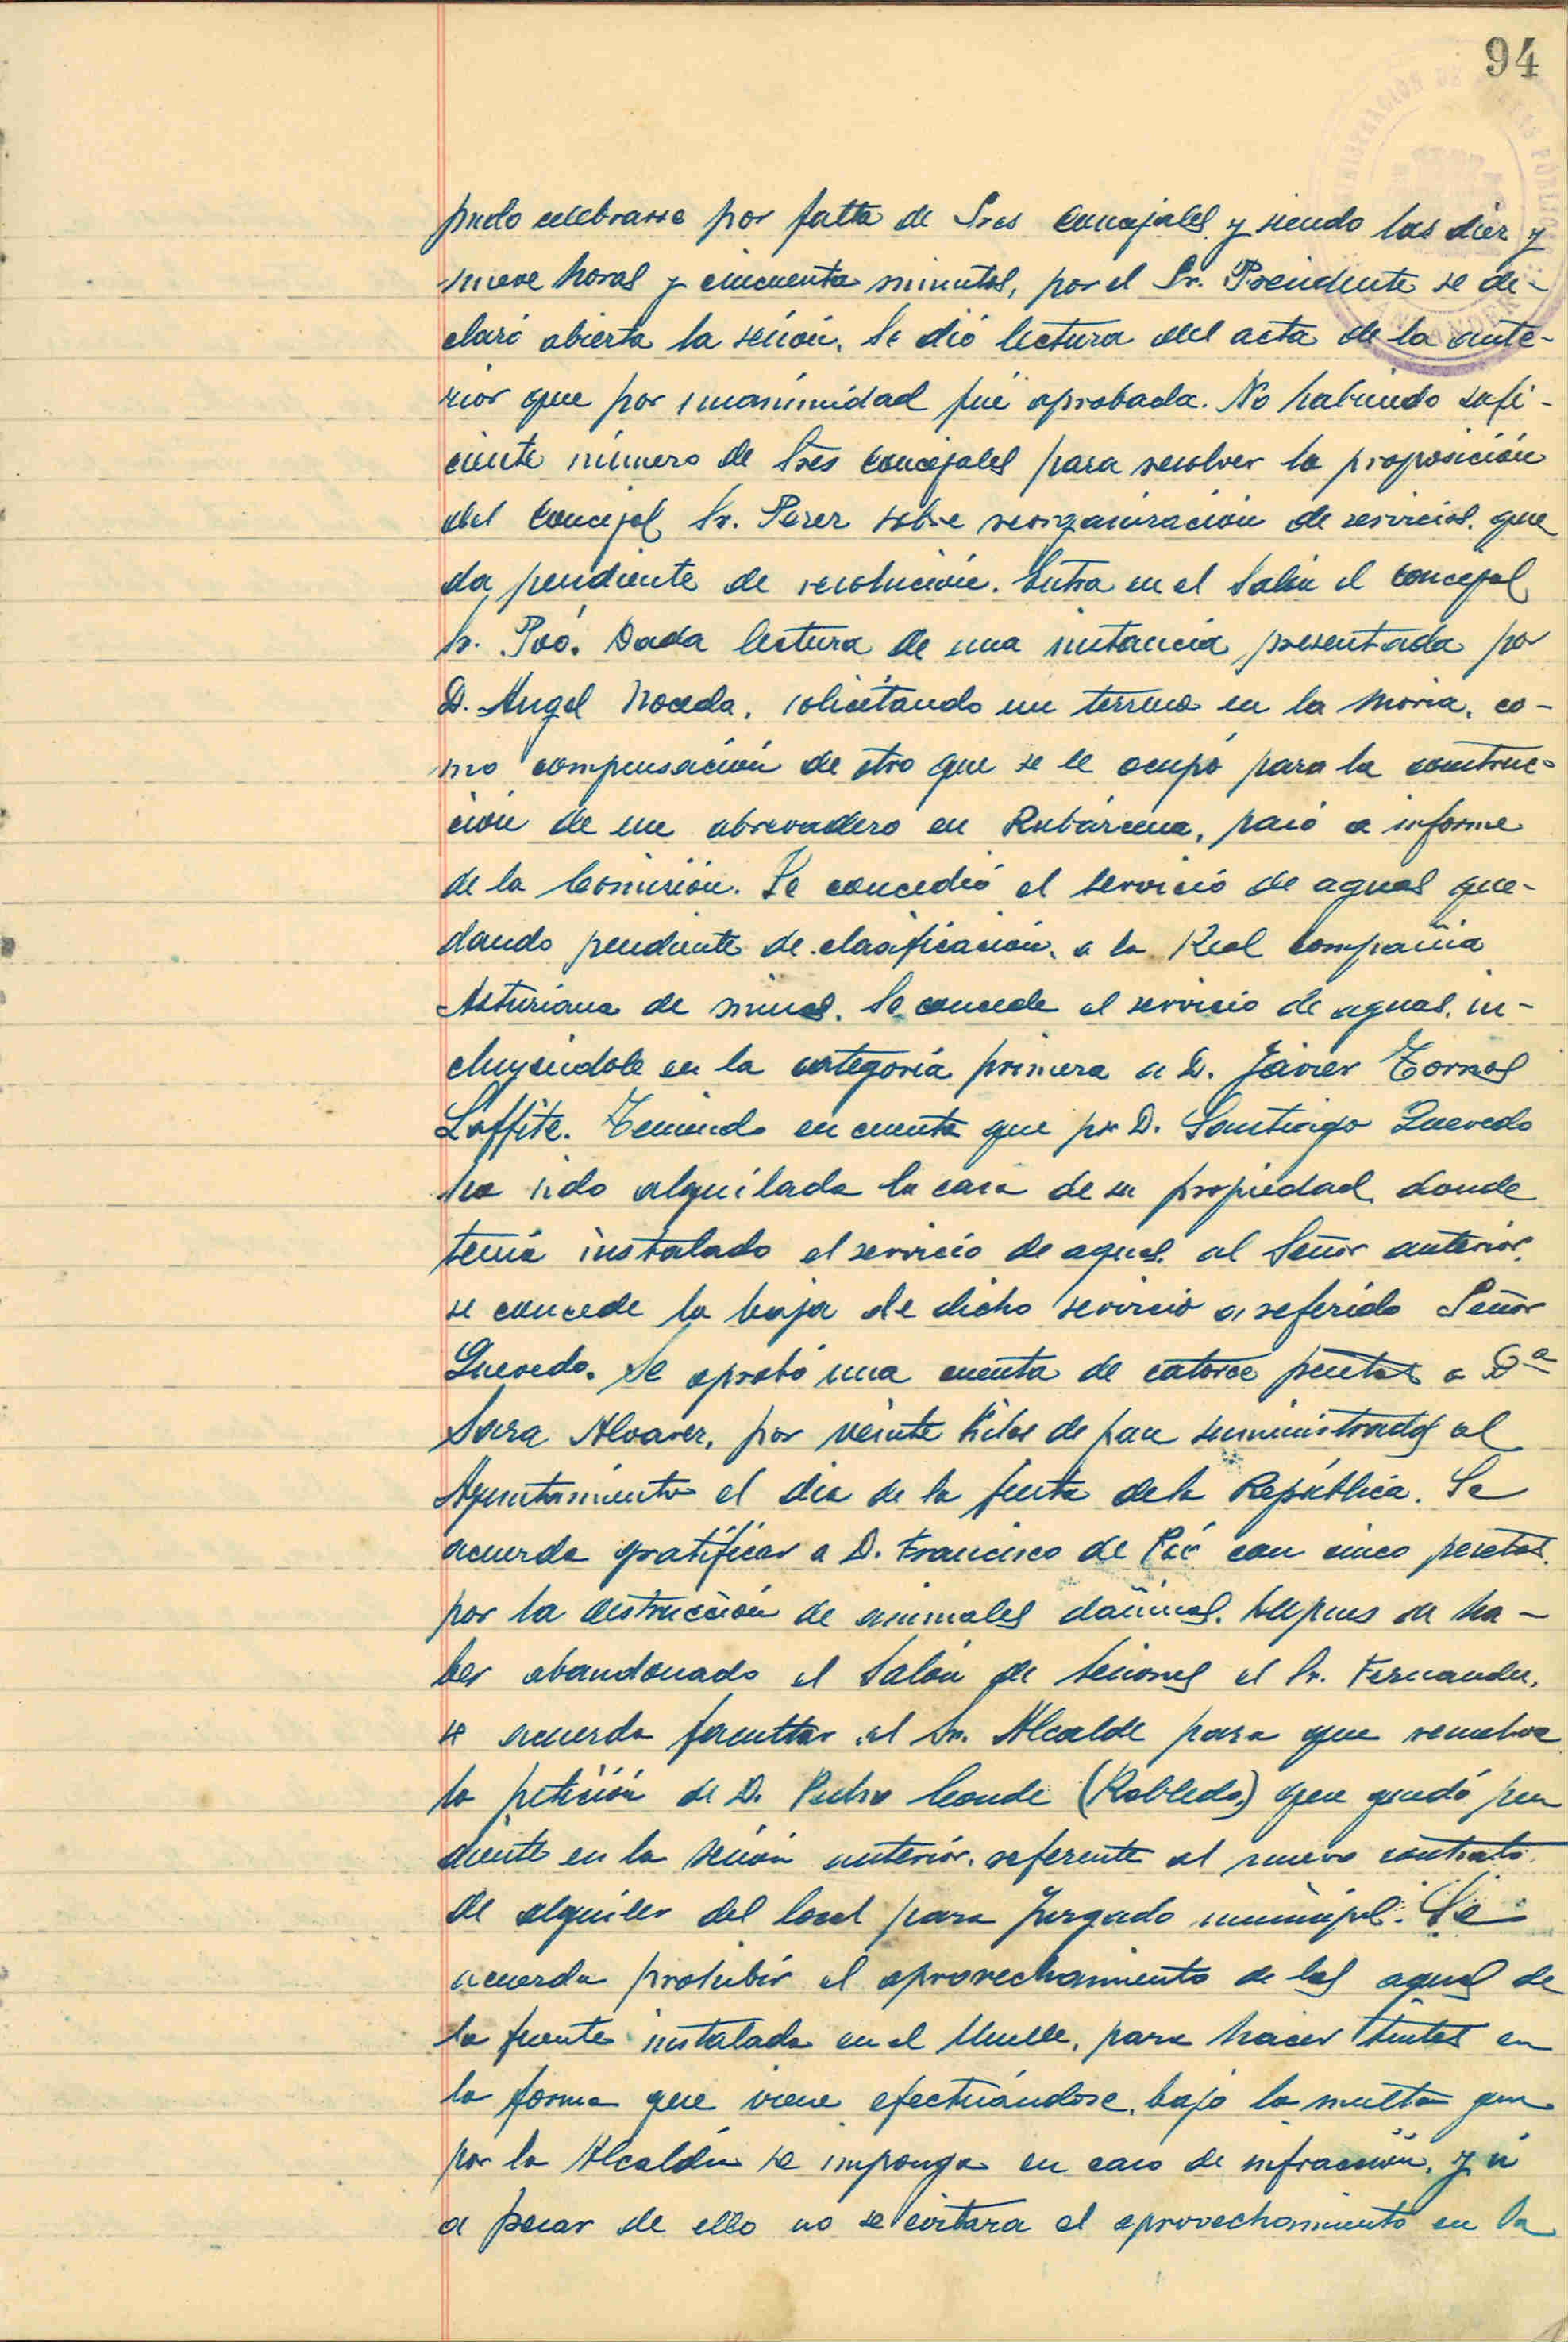 94
pudo celebrarse por falta de Sres Concejales y siendo las diez y
nueve horas y cincuenta minutos, por el Sr. Presidente se de-
claró abierta la sesión. Se dió lectura del acta de la ante-
rior que por unanimidad fué aprobada. No habiendo sufi-
ciente número de Sres Concejales para resolver la proposición
del Concejal Sr. Perez sobre reorganización de servicios, que
da pendiente de resolución. Entra en el Salón el Concejal
Sr. Poó. Dada lectura de una instancia presentada por
D. Angel Noceda, solicitando un terreno en la Moria, co-
mo compensación de otro que se le ocupó para la construc-
ción de un abrevadero en Rubárcena, pasó a informe
de la Comisión. Se concedió el servicio de aguas que-
dando pendiente de clasificación, a la Real Compañia
Asturiana de minas. Se concede el servicio de aguas, in-
cluyéndole en la categoría primera a D. Javier Tornos
Laffite. Teniendo en cuenta que por D. Santiago Quevedo
ha sido alquilada la casa de su propiedad donde
tenia instalado el servicio de aguas, al Señor anterior,
se concede la baja de dicho servicio a referido Señor
Quevedo. Se aprobó una cuenta de catorce pesetas a Dª
Sara Alvarez, por veinte kilos de pan suministrados al
Ayuntamiento el dia de la fiesta de la República. Se
acuerda gratificar a D. Francisco de Poó con cinco pesetas
por la destrucción de animales dañinos. Despues de ha-
ber abandonado el Salón de Sesiones el Sr. Fernandez,
se acuerda facultar al Sr. Alcalde para que resuelva
la petición de D. Pedro Conde (Robledo) que quedó pen
diente en la sesión anterior, referente al nuevo contrato
de alquiler del local para Juzgado municipal. Se
acuerda prohibir el aprovechamiento de las aguas de
la fuente instalada en el Muelle, para hacer tintes en
la forma que viene efectuándose, bajo la multa que
por la Alcaldia se imponga en caso de infracción, y si
a pesar de ello no se evitara el aprovechamiento en la